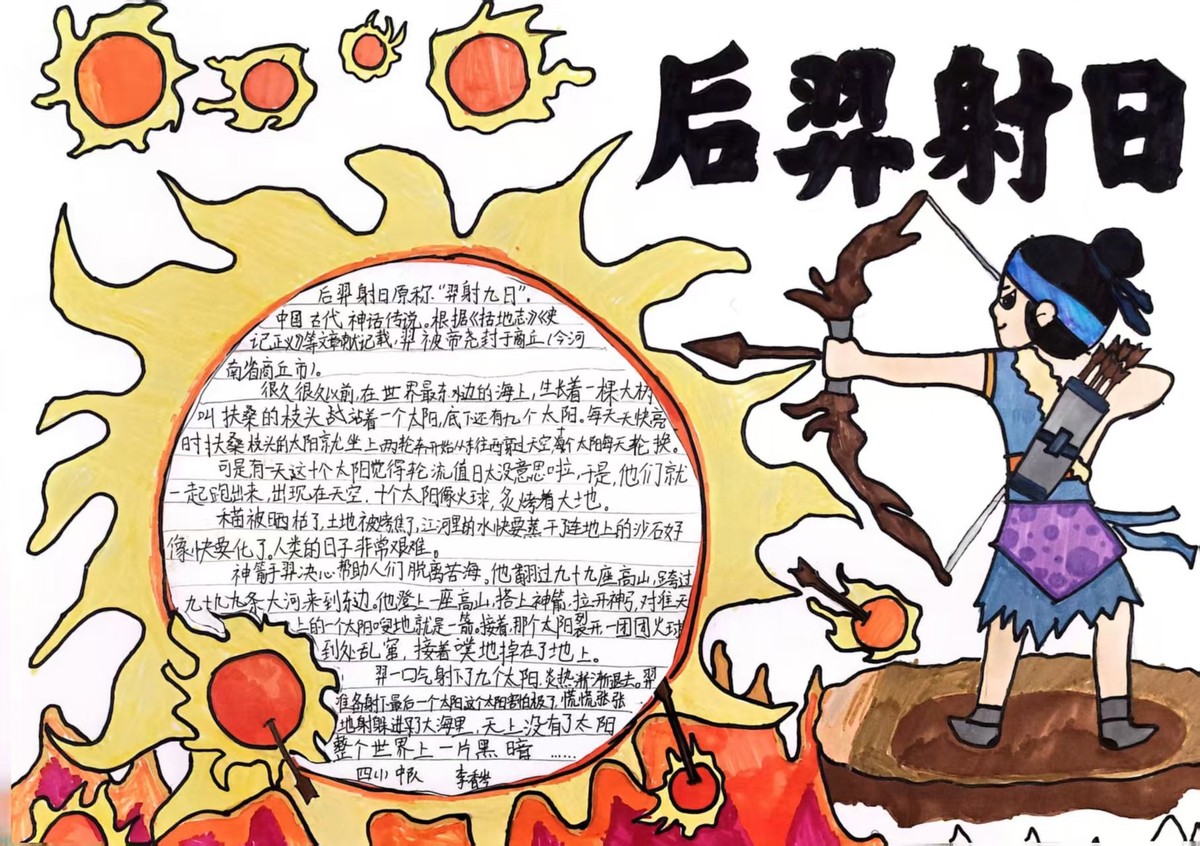 后羿射日
后羿射日原称“羿射九日”.
中国古代神话传说。根据《括地志》《史
记正义》等文献记载,羿被帝尧封于商丘(今河
南省商丘市)。
很久很久以前,在世界最东边的海上,生长着一棵大树
叫扶桑的枝头战站着一个太阳,底下还有九个太阳。每天天快亮
时扶桑枝头的太阳就坐上两轮车开始从东往西穿过天空 太阳每天轮换。
可是有一天这十个太阳觉得轮流值日太没意思啦,于是,他们就
一起跑出来,出现在天空,十个太阳像火球,炙烤着大地。
禾苗被晒枯了,土地被烤焦了,江河里的水快要蒸干了连地上的沙石好
像快要化了,人类的日子非常艰难。
神箭手羿决心帮助人们脱离苦海。他翻过九十九座高山,跨过
九十九条大河来到东边。他澄上一座高山,搭上神箭,拉开神弓,对准天
上的一个太阳嗖地就是一箭。接着,那个太阳裂开一团团火球
到处乱窜,接着噗地掉在了地上。
羿一口气射下了九个太阳.炎热渐渐退去。羿
准备射下最后一个太阳这个太阳害怕极了,慌慌张张
地射躲进了大海里,天上没有了太阳
整个世界上一片黑暗……
四(1)中队 李